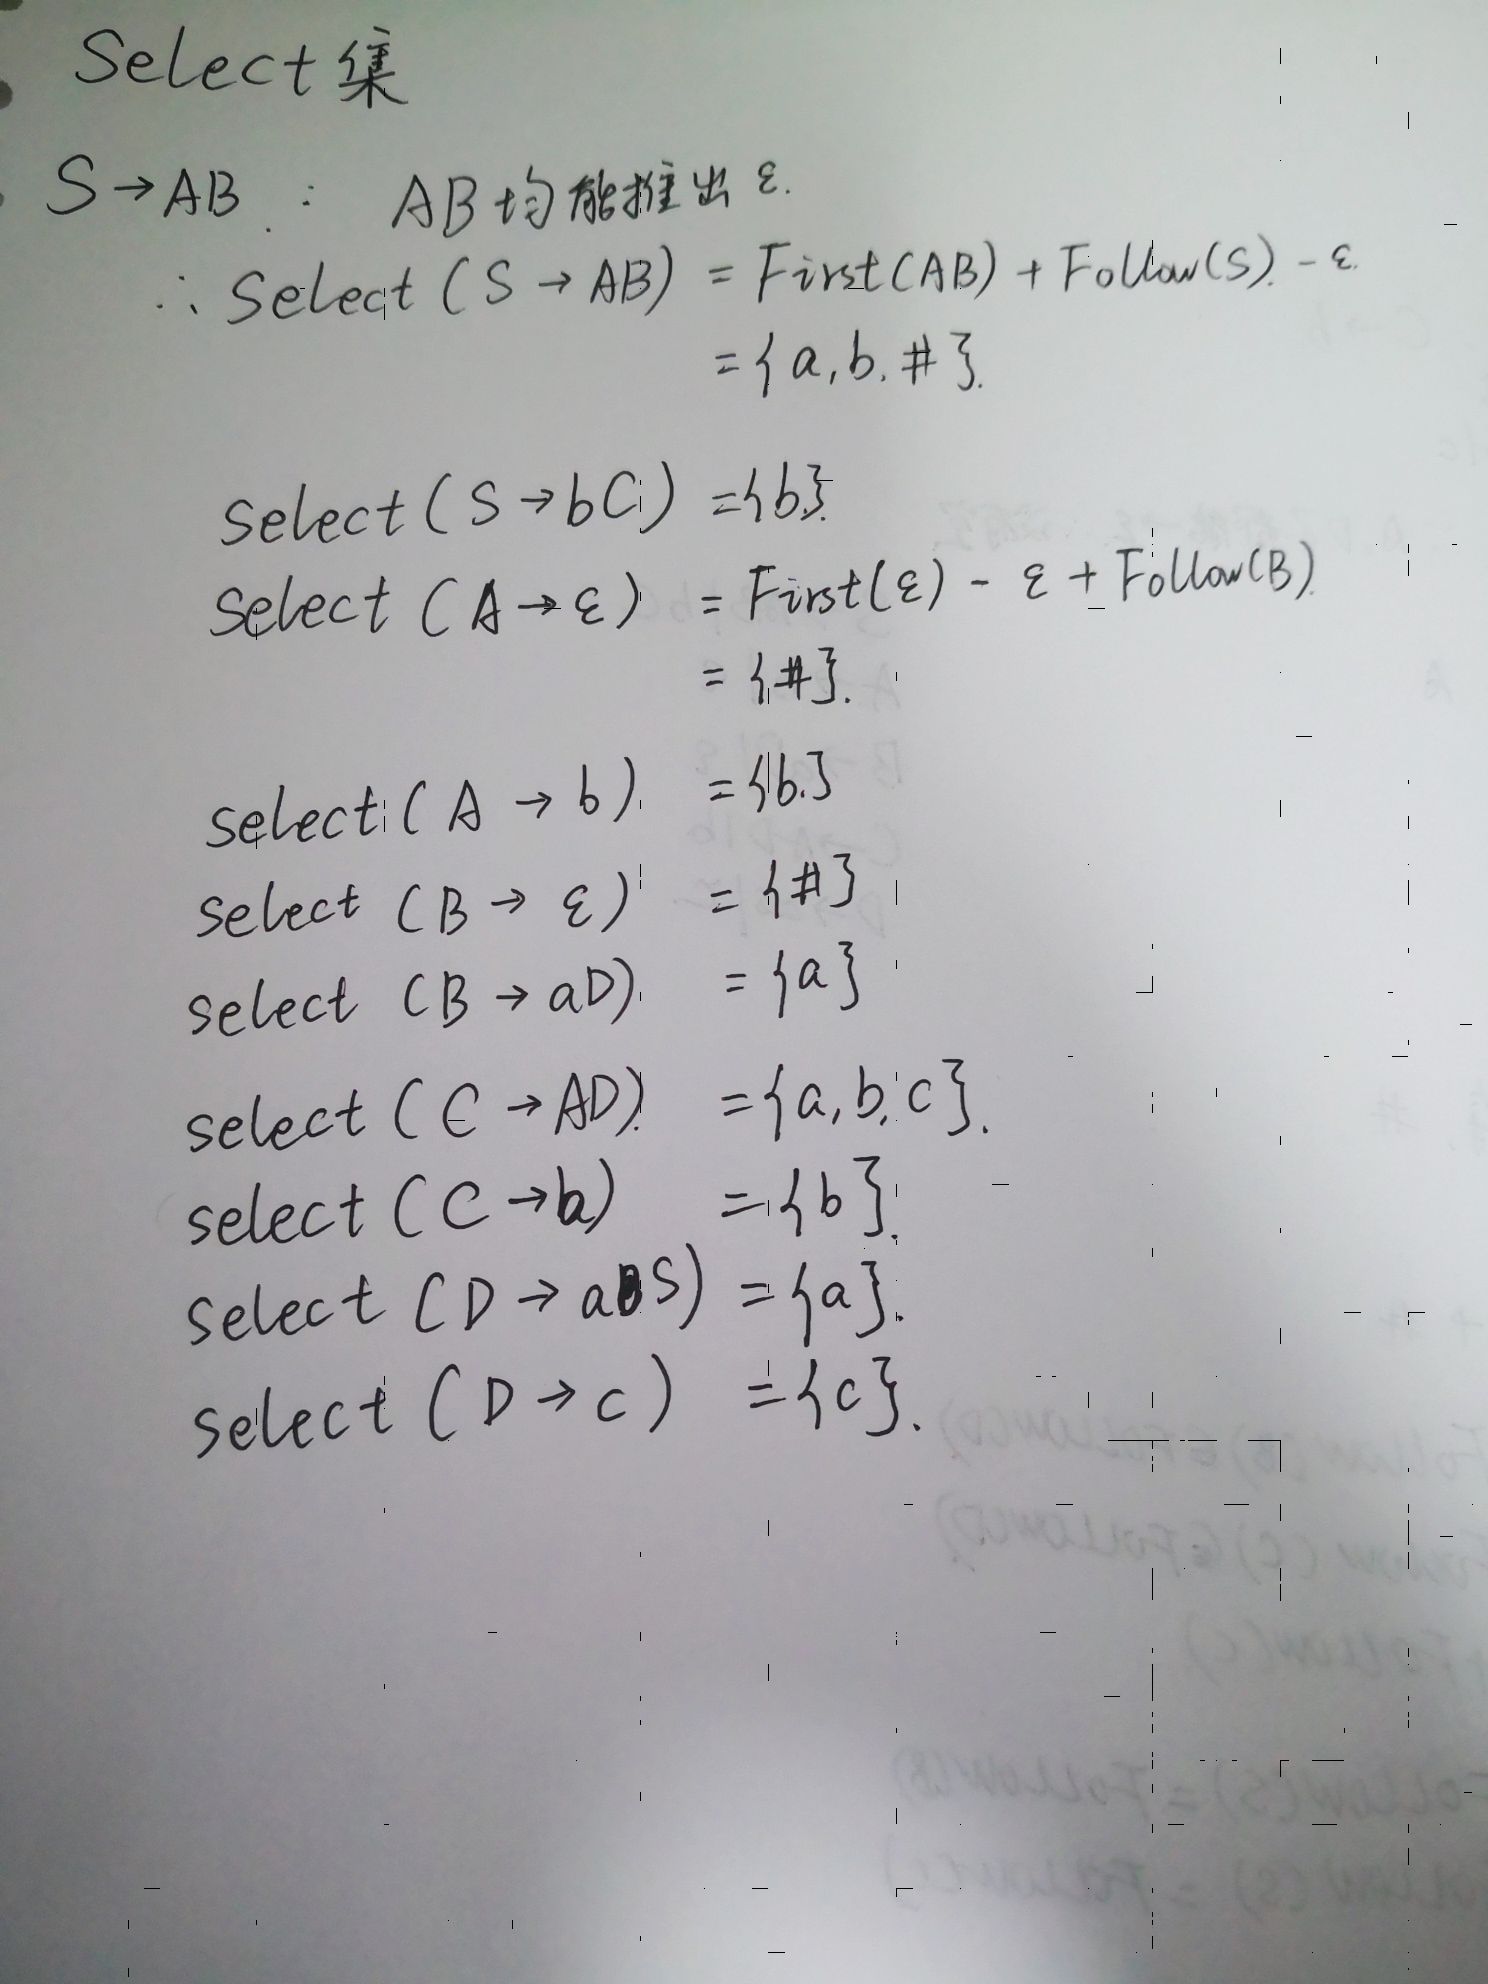 Select集
S→AB : AB均能推出 ε.
∴ Select (S→AB) = First(AB) + Follow(S) - ε.
= {a, b, #}.
select (S→bC) = {b}.
select (A→ε) = First(ε) - ε + Follow(B).
= {#}.
select (A→b) = {b}
select (B→ε) = {#}
select (B→aD) = {a}
select (C→AD) = {a, b, c}.
select (C→b) = {b}.
select (D→aS) = {a}.
select (D→c) = {c}.